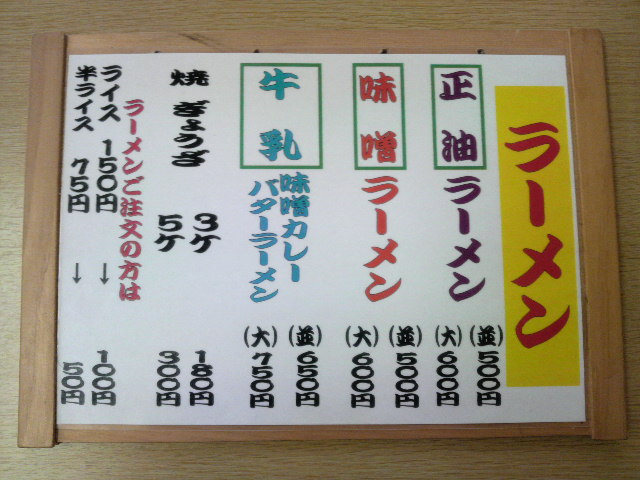 ラーメン
正油
ラーメン
(並)500円
(大)600円
味噌
ラーメン
(並)500円
(大)600円
牛乳
味噌カレー
バターラーメン
(並)650円
(大)750円
焼ぎょうざ
3ケ 180円
5ケ 300円
ラーメンご注文の方は
ライス 150円 → 100円
半ライス 75円 → 50円